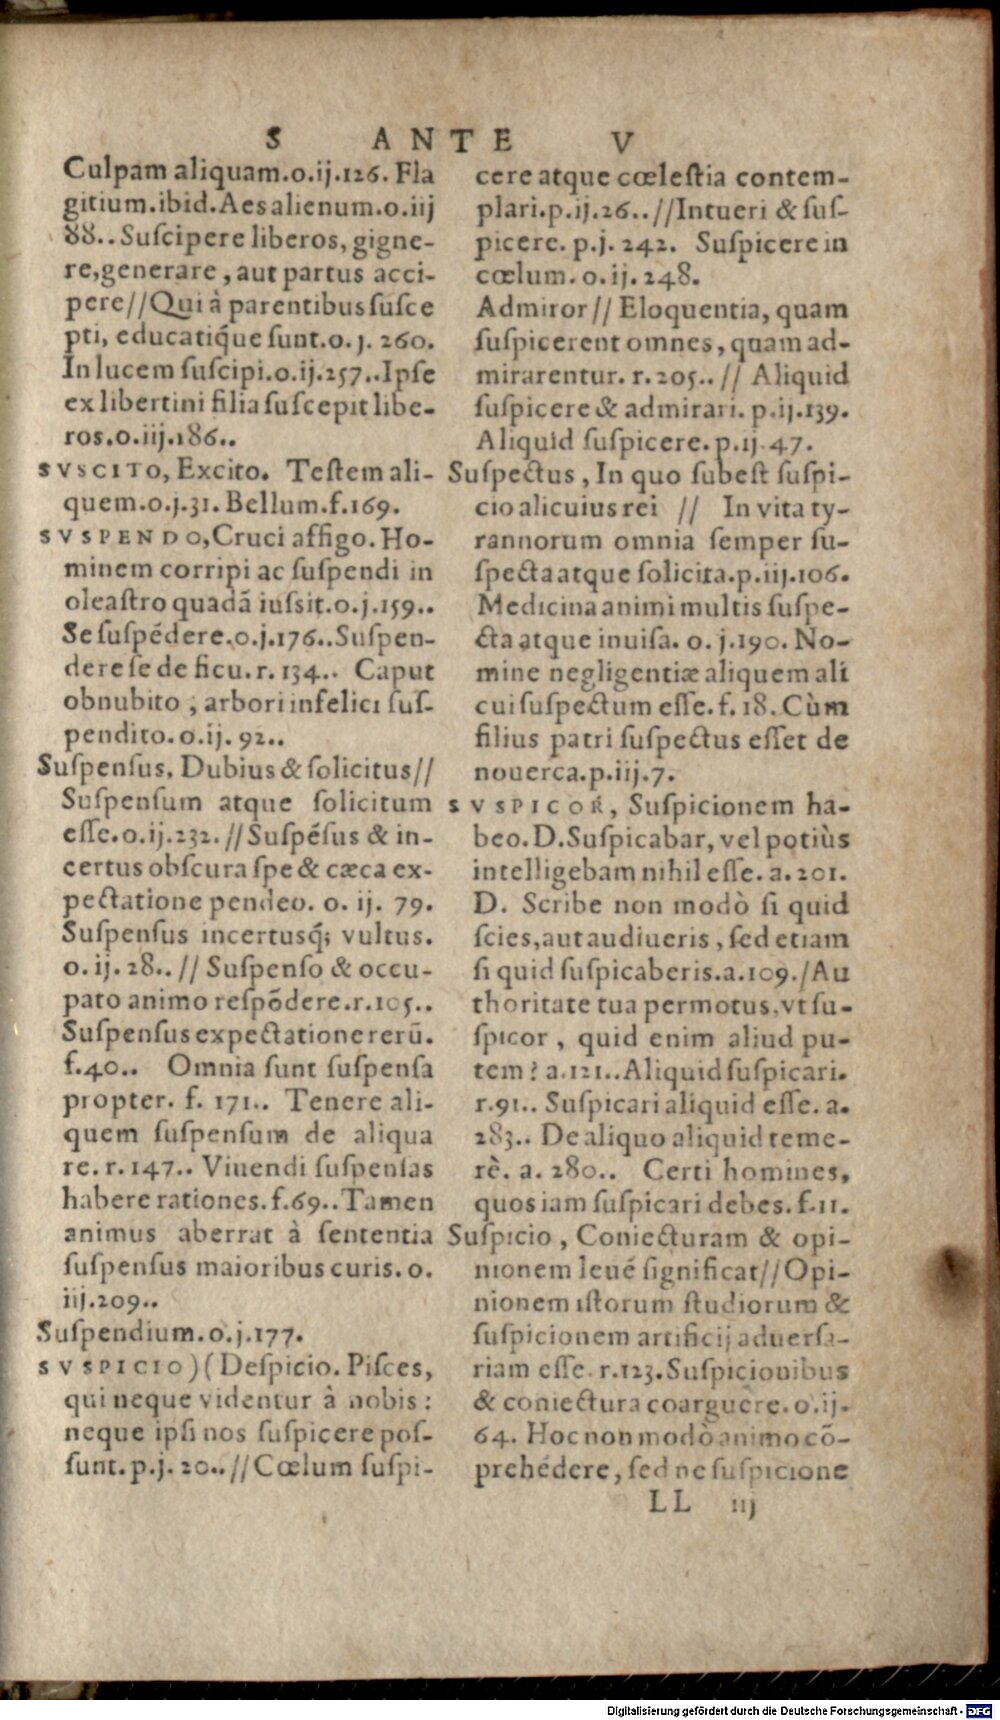 S ANTE V
Culpam aliquam.o.ij.126. Fla
gitium.ibid.Aes alienum.o.iij
88..Suſcipere liberos, gigne-
re,generare, aut partus acci-
pere//Qui à parentibus ſuſce
pti, educatiq́ue ſunt.o.j.260.
In lucem ſuſcipi.o.ij.257..Ipſe
ex libertini filia ſuſcepit libe-
ros.o.iij.186..
SVSCITO, Excito. Teſtem ali-
quem.o.j.31.Bellum.f.169.
SVSPENDO, Cruci affigo. Ho-
minem corripi ac ſuſpendi in
oleaſtro quadã iuſsit.o.j.159..
Se ſuſpẽdere.o.j.176..Suſpen-
dere ſe de ficu.r.134.. Caput
obnubito, arbori infelici ſuſ-
pendito.o.ij.92..
Suſpenſus, Dubius & ſolicitus//
Suſpenſum atque ſolicitum
eſſe.o.ij.232.//Suſpẽſus & in-
certus obſcura ſpe & cæca ex-
pectatione pendeo. o. ij. 79.
Suſpenſus incertusq́; vultus.
o.ij.28..//Suſpenſo & occu-
pato animo reſpõdere.r.105..
Suſpenſus expectatione rerũ.
f.40.. Omnia ſunt ſuſpenſa
propter. f. 171.. Tenere ali-
quem ſuſpenſum de aliqua
re.r.147..Viuendi ſuſpenſas
habere rationes.f.69..Tamen
animus aberrat à ſententia
ſuſpenſus maioribus curis.o.
iij.209..
Suſpendium.o.j.177.
SVSPICIO)(Deſpicio. Piſces,
qui neque videntur à nobis:
neque ipſi nos ſuſpicere poſ-
ſunt.p.j.20..//Cœlum ſuſpi-
cere atque cœleſtia contem-
plari.p.ij.26..//Intueri & ſuſ-
picere. p.j. 242. Suſpicere in
cœlum.o.ij.248.
Admiror// Eloquentia, quam
ſuſpicerent omnes, quam ad-
mirarentur. r.205..// Aliquid
ſuſpicere & admirari. p.ij.139.
Aliquid ſuſpicere.p.ij.47.
Suſpectus, In quo ſubeſt ſuſpi-
cio alicuius rei // In vita ty-
rannorum omnia ſemper ſu-
ſpecta atque ſolicita.p.iij.106.
Medicina animi multis ſuſpe-
cta atque inuiſa. o. j.190. No-
mine negligentiæ aliquem ali
cui ſuſpectum eſſe.f.18.Cùm
filius patri ſuſpectus eſſet de
nouerca.p.iij.7.
SVSPICOR, Suſpicionem ha-
beo.D.Suſpicabar, vel potiùs
intelligebam nihil eſſe. a.201.
D. Scribe non modò ſi quid
ſcies,aut audiueris, ſed etiam
ſi quid ſuſpicaberis.a.109./Au
thoritate tua permotus,vt ſu-
ſpicor, quid enim aliud pu-
tem? a.121..Aliquid ſuſpicari.
r.91.. Suſpicari aliquid eſſe. a.
283.. De aliquo aliquid teme-
rè. a. 280.. Certi homines,
quos iam ſuſpicari debes.f.11.
Suſpicio, Coniecturam & opi-
nionem leuẽ ſignificat//Opi-
nionem iſtorum ſtudiorum &
ſuſpicionem artificij aduerſa-
riam eſſe. r.123.Suſpicionibus
& coniectura coarguere.o.ij.
64. Hoc non modò animo cõ-
prehẽdere, ſed ne ſuſpicione
LL iij
Digitalisierung gefördert durch die Deutsche Forschungsgemeinschaft - DFG